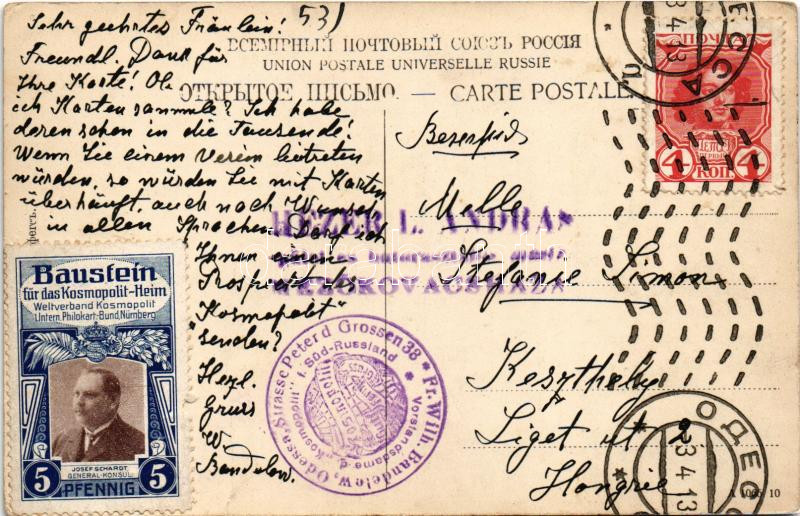 531
Sehr geehrtes Fräulein!
Freundl. Dank für
Ihre Karte! Ob
ich Karten sammle? Ich habe
deren schon in die Tausende!
Wenn Sie einem Verein beitreten
würden, so würden Sie mit Karten
überhäuft, auch nach Wunsch
in allen Sprachen. Darf ich
Ihnen einen
Prospekt des
"Kosmopolit"
senden?
Herzl.
Gruss
W.
Bandelow.
ВСЕМІРНЫЙ ПОЧТОВЫЙ СОЮЗЪ РОССІЯ
UNION POSTALE UNIVERSELLE RUSSIE
ОТКРЫТОЕ ПИСЬМО. — CARTE POSTALE
Melle
Stefanie Simon
Keszthely
Liget ut 2
Hongrie
HEZER L. ANDRAS
ПОЧТА
4 4
КОП.
ОДЕССА
3 4 13
ОДЕС
3 4 13
Baustein
für das Kosmopolit-Heim
Weltverband Kosmopolit
Untern. Philokart-Bund, Nürnberg
JOSEF SCHARDT
GENERAL-KONSUL.
5 5
PFENNIG
* Fr. Wilh. Bandelow Odessa Strasse Peter d Grossen 38
Vorstandsdame d. "Kosmopolit" f. Süd-Russland
10